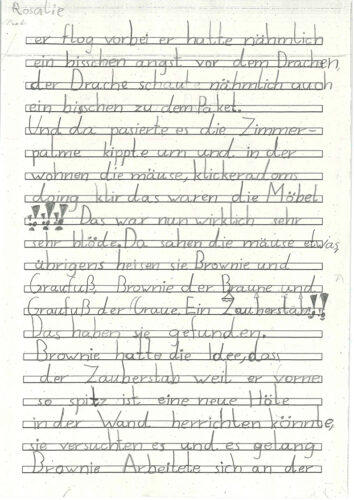 Rosalie
er flog vorbei er hatte nähmlich
ein bisschen angst vor dem Drachen,
der Drache schaute nähmlich auch
ein bisschen zu dem Paket.
Und da pasierte es die Zimmer-
palme kippte um und in der
wohnen die mäuse, klickeradoms
doing klir das waren die Möbel
!!!! Das war nun wirklich sehr
sehr blöde. Da sahen die mäuse etwas,
übrigens heisen sie Brownie und
Graufuß, Brownie der Braune und
Graufuß der Graue. Ein Zauberstab!!
Das haben sie gefunden.
Brownie hatte die Idee, dass
der Zauberstab weil er vorne
so spitz ist eine neue Höle
in der Wand herrichten könnte,
sie versuchten es und es gelang
Brownie Arbeitete sich an der